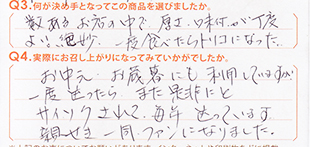 Q3.何が決め手となってこの商品を選びましたか。
数あるお店の中で厚さ、味付が丁度
よい、絶妙、一度食べたらトリコになった。
Q4.実際にお召し上がりになってみていかがでしたか。
お中元、お歳暮にも利用しているが
一度送ったらまた是非にと
サイソクされて、毎年送っています。
親せき一同ファンになりました。